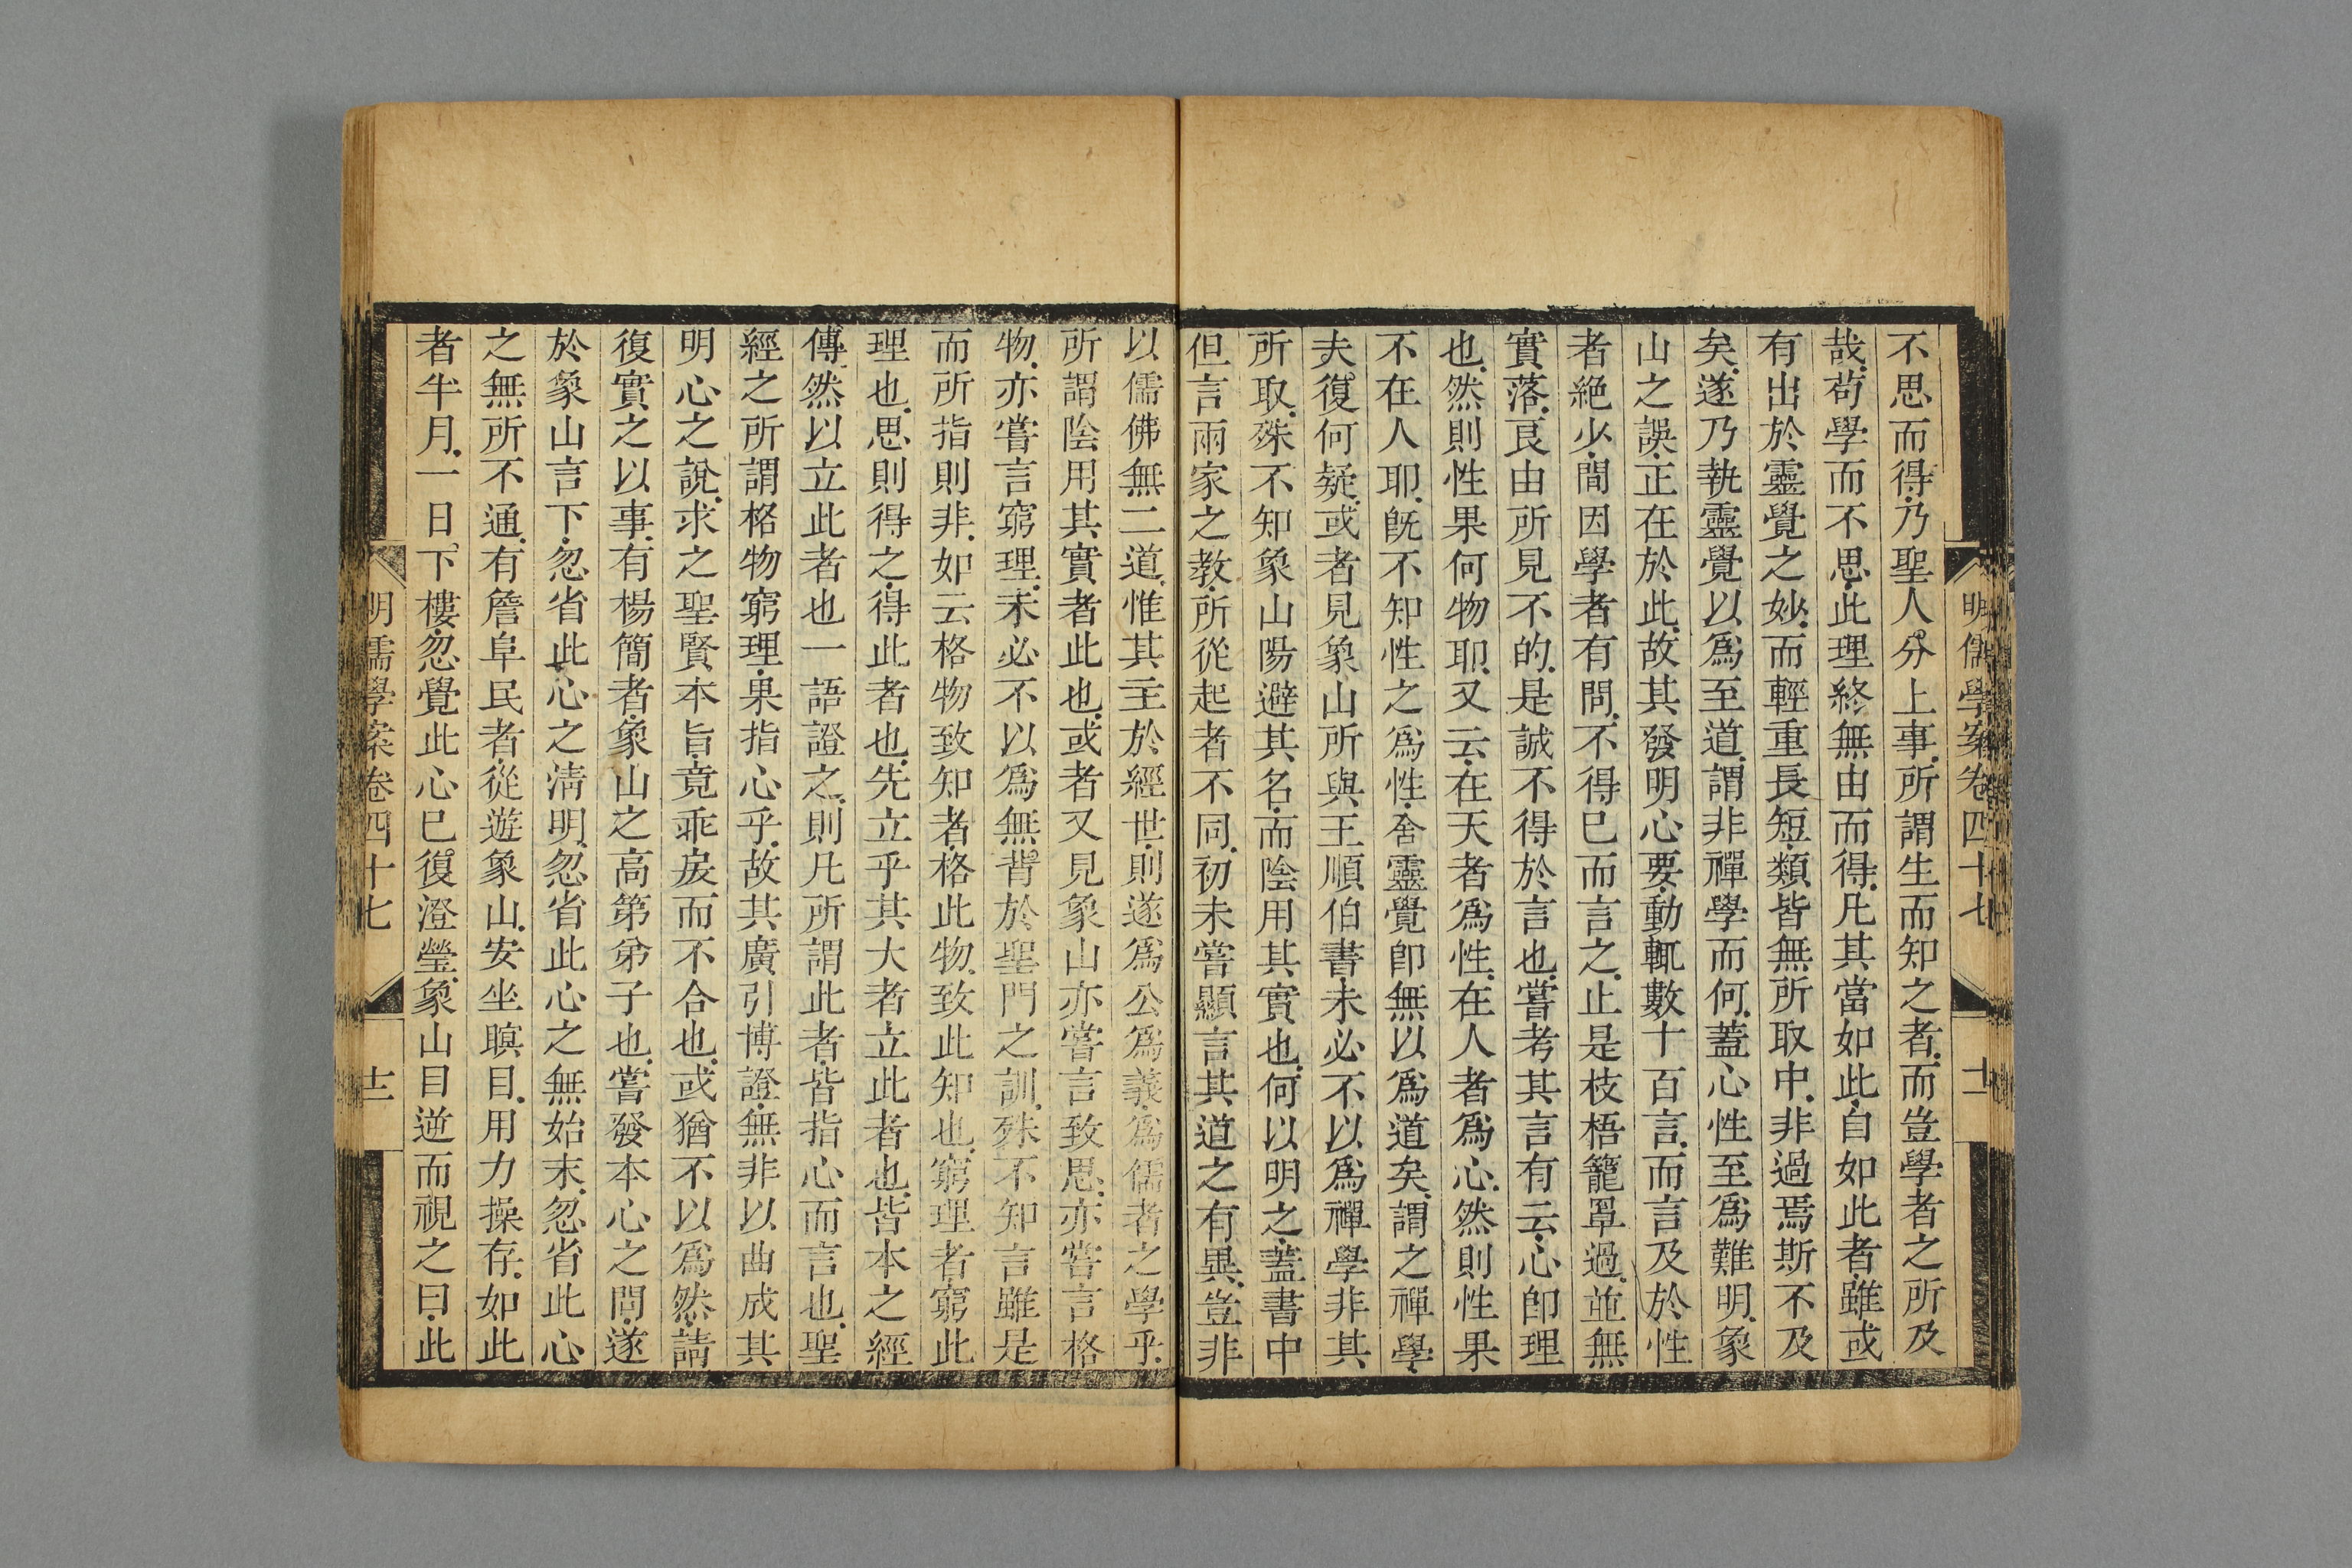 明儒學案卷四十七
十二
不思而得乃聖人分上事所謂生而知之者而豈學者之所及
哉苟學而不思此理終無由而得凡其當如此自如此者雖或
有出於靈覺之妙而輕重長短類皆無所取中非過焉斯不及
矣遂乃執靈覺以爲至道謂非禪學而何蓋心性至爲難明象
山之誤正在於此故其發明心要動輒數十百言而言及於性
者絶少間因學者有問不得已而言之止是枝梧籠罩過並無
實落良由所見不的是誠不得於言也嘗考其言有云心即理
也然則性果何物耶又云在天者爲性在人者爲心然則性果
不在人耶既不知性之爲性舍靈覺即無以爲道矣謂之禪學
夫復何疑或者見象山所與王順伯書未必不以爲禪學非其
所取殊不知象山陽避其名而陰用其實也何以明之蓋書中
但言兩家之教所從起者不同初未嘗顯言其道之有異豈非
以儒佛無二道惟其主於經世則遂爲公爲義爲儒者之學乎
所謂陰用其實者此也或者又見象山亦嘗言致思亦嘗言格
物亦嘗言窮理未必不以爲無背於聖門之訓殊不知言雖是
而所指則非如云格物致知者格此物致此知也窮理者窮此
理也思則得之得此者也先立乎其大者立此者也皆本之經
傳然以立此者也一語證之則凡所謂此者皆指心而言也聖
經之所謂格物窮理果指心乎故其廣引博證無非以曲成其
明心之說求之聖賢本旨竟乖戾而不合也或猶不以爲然請
復實之以事有楊簡者象山之高第弟子也嘗發本心之問遂
於象山言下忽省此心之淸明忽省此心之無始末忽省此心
之無所不通有詹阜民者從遊象山安坐瞑目用力操存如此
者半月一日下樓忽覺此心已復澄瑩象山目逆而視之曰此
明儒學案卷四十七
十三